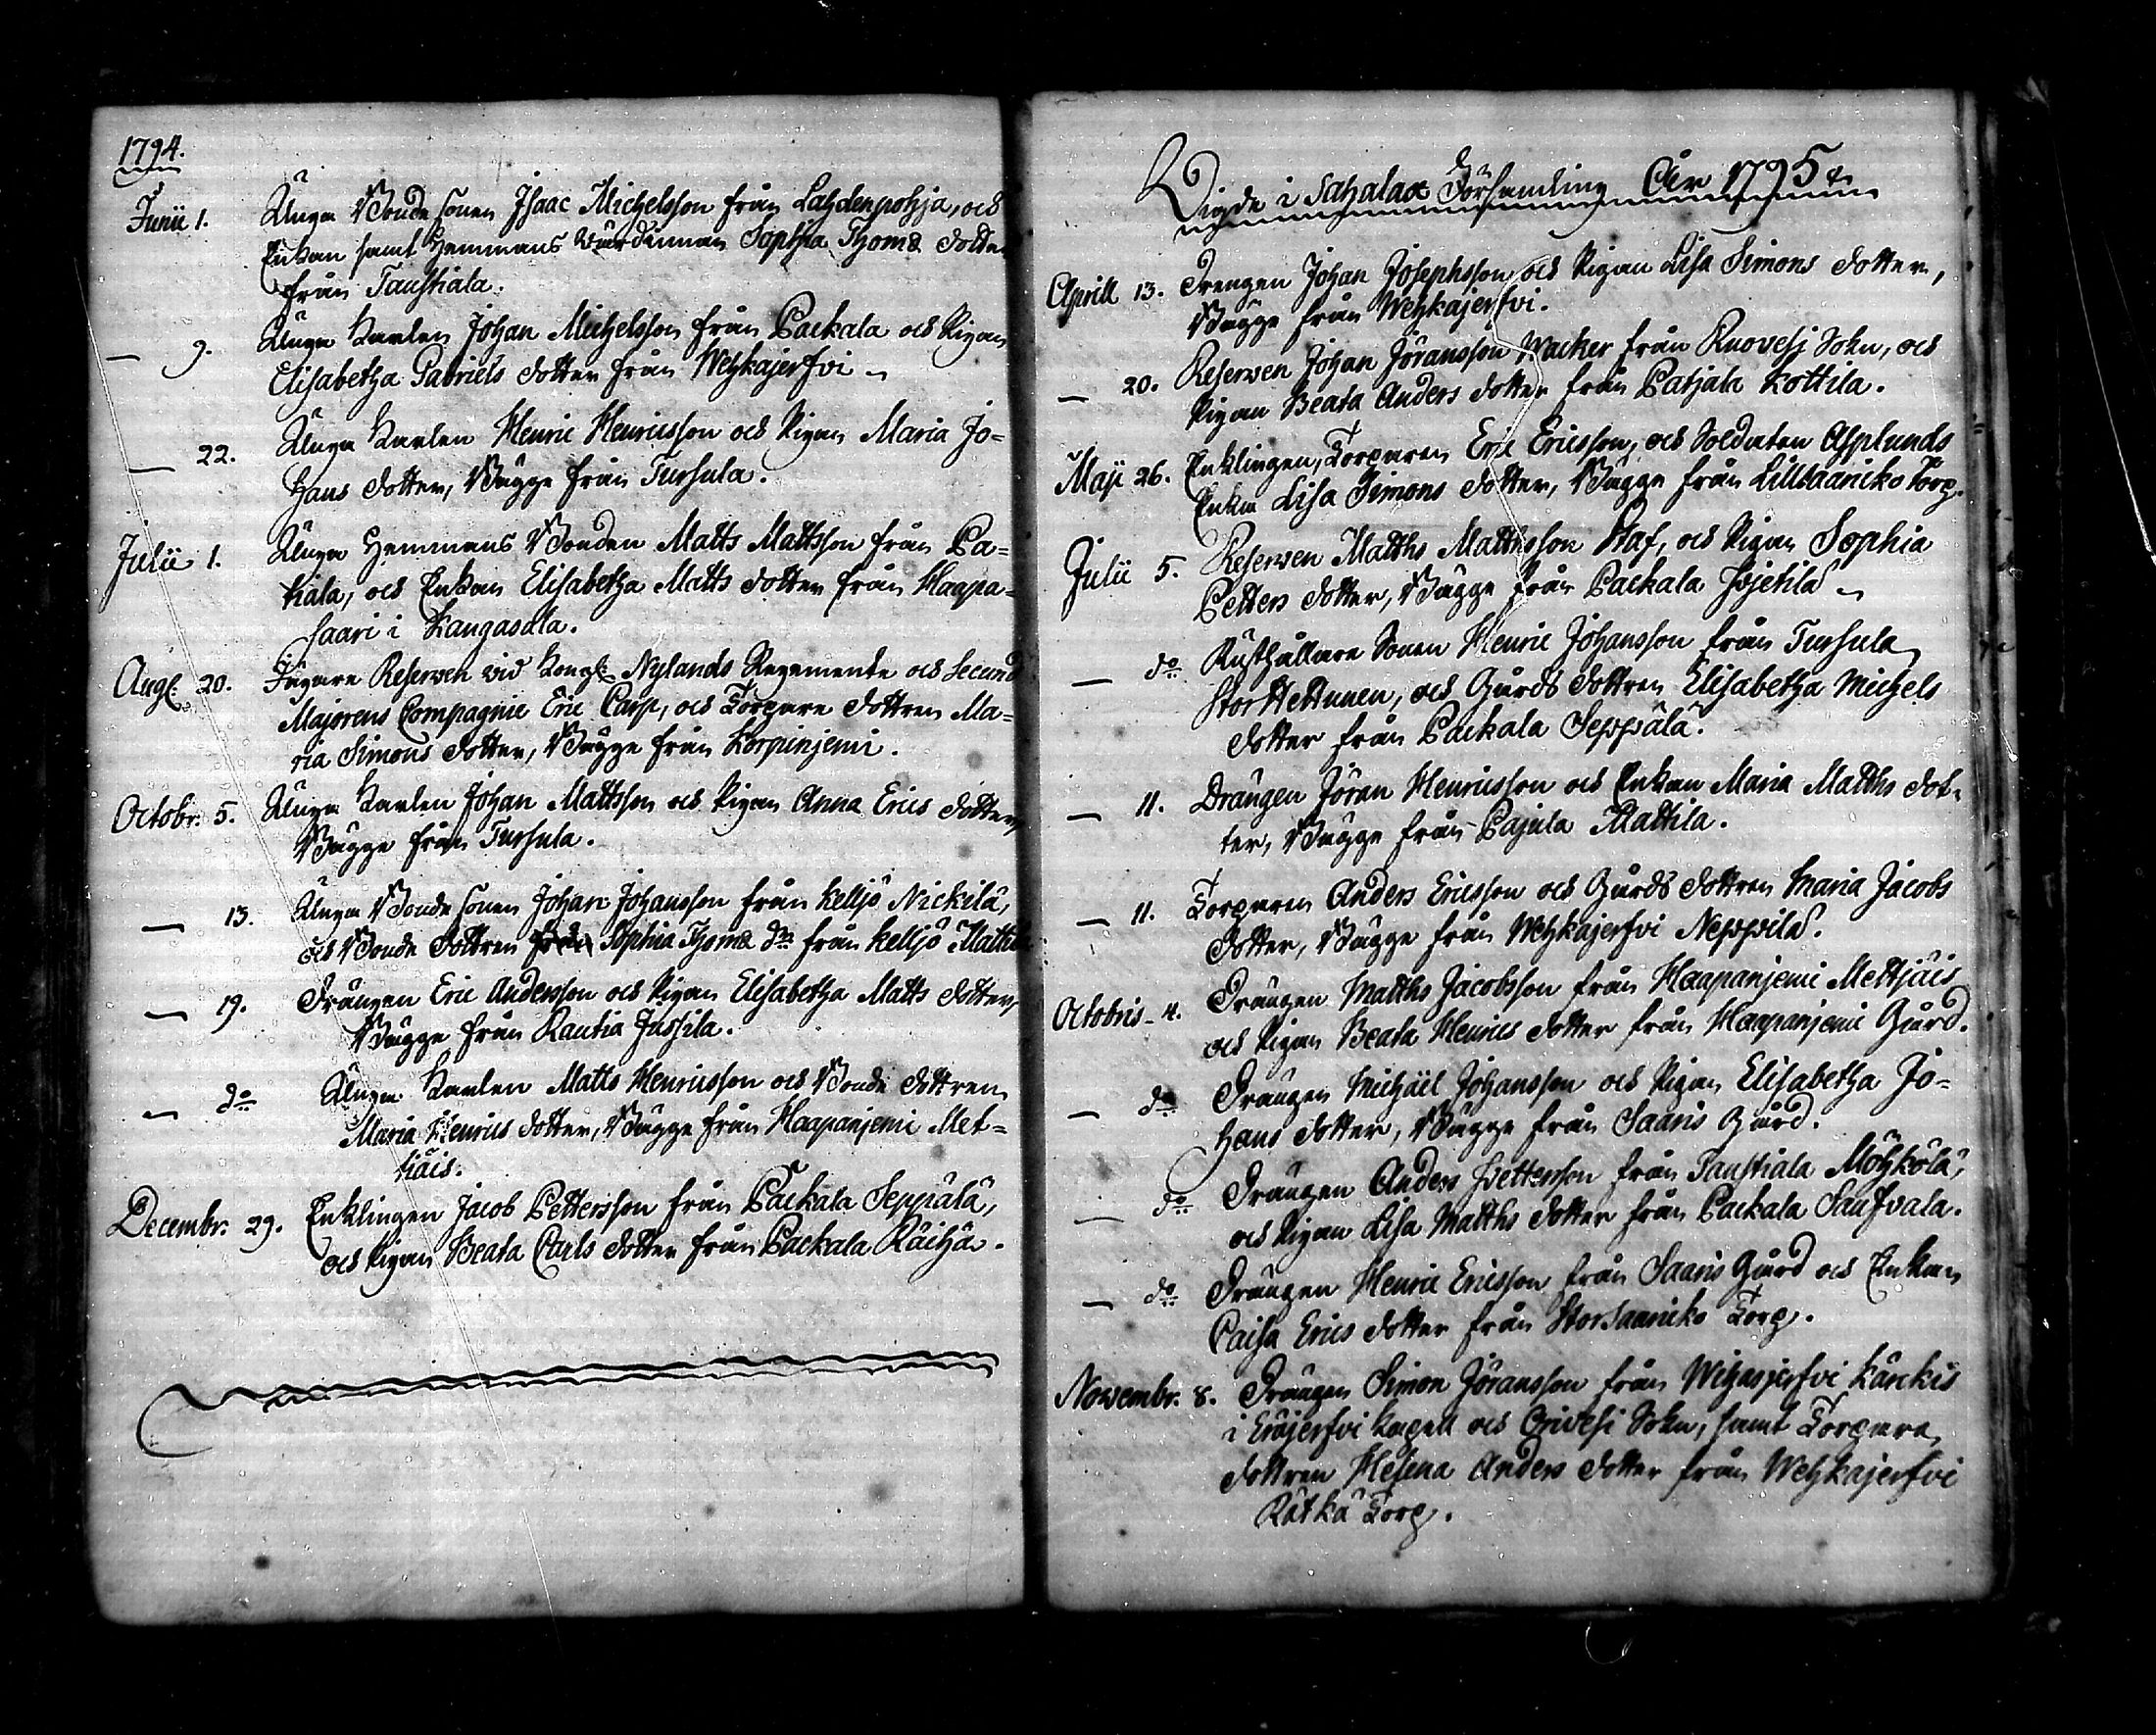 1794.
Junii 1. Unga Bonde sonen Isaac Michelsson från Lahdenpohja, och
Enkan samt Hemmans Värdinnan Sophia Thomæ dotter
från Taustiala.
— 9. Unga Karlen Johan Michelsson från Packala och Pigan
Elisabetha Gabriels dotter från Wehkajerfvi
— 22. Unga Karlen Henric Henricsson och Pigan Maria Jo=
hans dotter, Bägge från Tursula.
Julii 1. Unga Hemmans Bonden Matts Mattsson från Pa=
kiala, och Enkan Elisabetha Matts dotter från Haapa=
saari i Kangasala.
Aug. 20. Jägare Reserven vid Kongl. Nylands Regemente och Secund
Majorens Compagnie Eric Carp, och Torpare dottren Ma=
ria Simons dotter, Bägge från Korpinjemi.
Octobr. 5. Unga Karlen Johan Mattsson och Pigan Anna Erics dotter,
Bägge från Tursula.
— 13. Unga Bonde sonen Johan Johansson från Kelljö Nickilä,
och Bonde dottren Sophia Thomæ do från Kelljö Mattila
— 19. Drängen Eric Andersson och Pigan Elisabetha Matts dotter,
Bägge från Rautia Jussila.
— do Unga Karlen Matts Henricsson och Bonde dottren
Maria Henrics dotter, Bägge från Haapanjemi Met=
käis.
Decembr. 29. Enklingen Jacob Pettersson från Packala Seppälä,
och Pigan Beata Carls dotter från Packala Räihä.
Vigde i Sahalax Församling År 1795
Aprill 13. Drengen Johan Josephsson och Pigan Lisa Simons dotter,
Bägge från Wehkajerfvi.
— 20. Reserven Johan Jöransson Wacker från Ruovesj Sokn, och
Pigan Beata Anders dotter från Pahjala Kottila.
Maji 26. Enklingen, Torparen Eric Ericsson, och Soldaten Asplunds
Enka Lisa Simons dotter, Bägge från Lillsaaniko Torp.
Julii 5. Reserven Matths Matthsson Staf, och Pigan Sophia
Petters dotter, Bägge från Packala
— do Rusthållare Sonen Henric Johansson från Tursula
Stor Hettunen, och Gårds dottren Elisabetha Michels
dotter från Packala Seppälä.
— 11. Drängen Jöran Henricsson och Enkan Maria Matths dot=
ter, Bägge från Pajula Mattila.
— 11. Torparen Anders Ericsson och Gårds dottren Maria Jacobs
dotter, Bägge från Wehkajerfvi Neppilä.
Octobris 4. Drängen Matths Jacobsson från Haapanjemi Mettjäis
och Pigan Beata Henrics dotter från Haapanjemi Gård.
— do Drängen Michäel Johansson och Pigan Elisabetha Jo=
hans dotter, Bägge från Saaris Gård.
— do Drängen Anders Pettersson från Taustiala Möhkölä,
och Pigan Lisa Matths dotter från Packala Saufvala.
— do Drängen Henric Ericsson från Saaris Gård och Enkan
Caisa Erics dotter från Storsaaniko Torp.
Novembr. 8. Drängen Simon Jöransson från Wihasjerfvi Kärckis
i Eräjerfvi Kapell och Orivesi Sokn, samt Torpare
dottren Helena Anders dotter från Wehkajerfvi
Rätkä Torp.